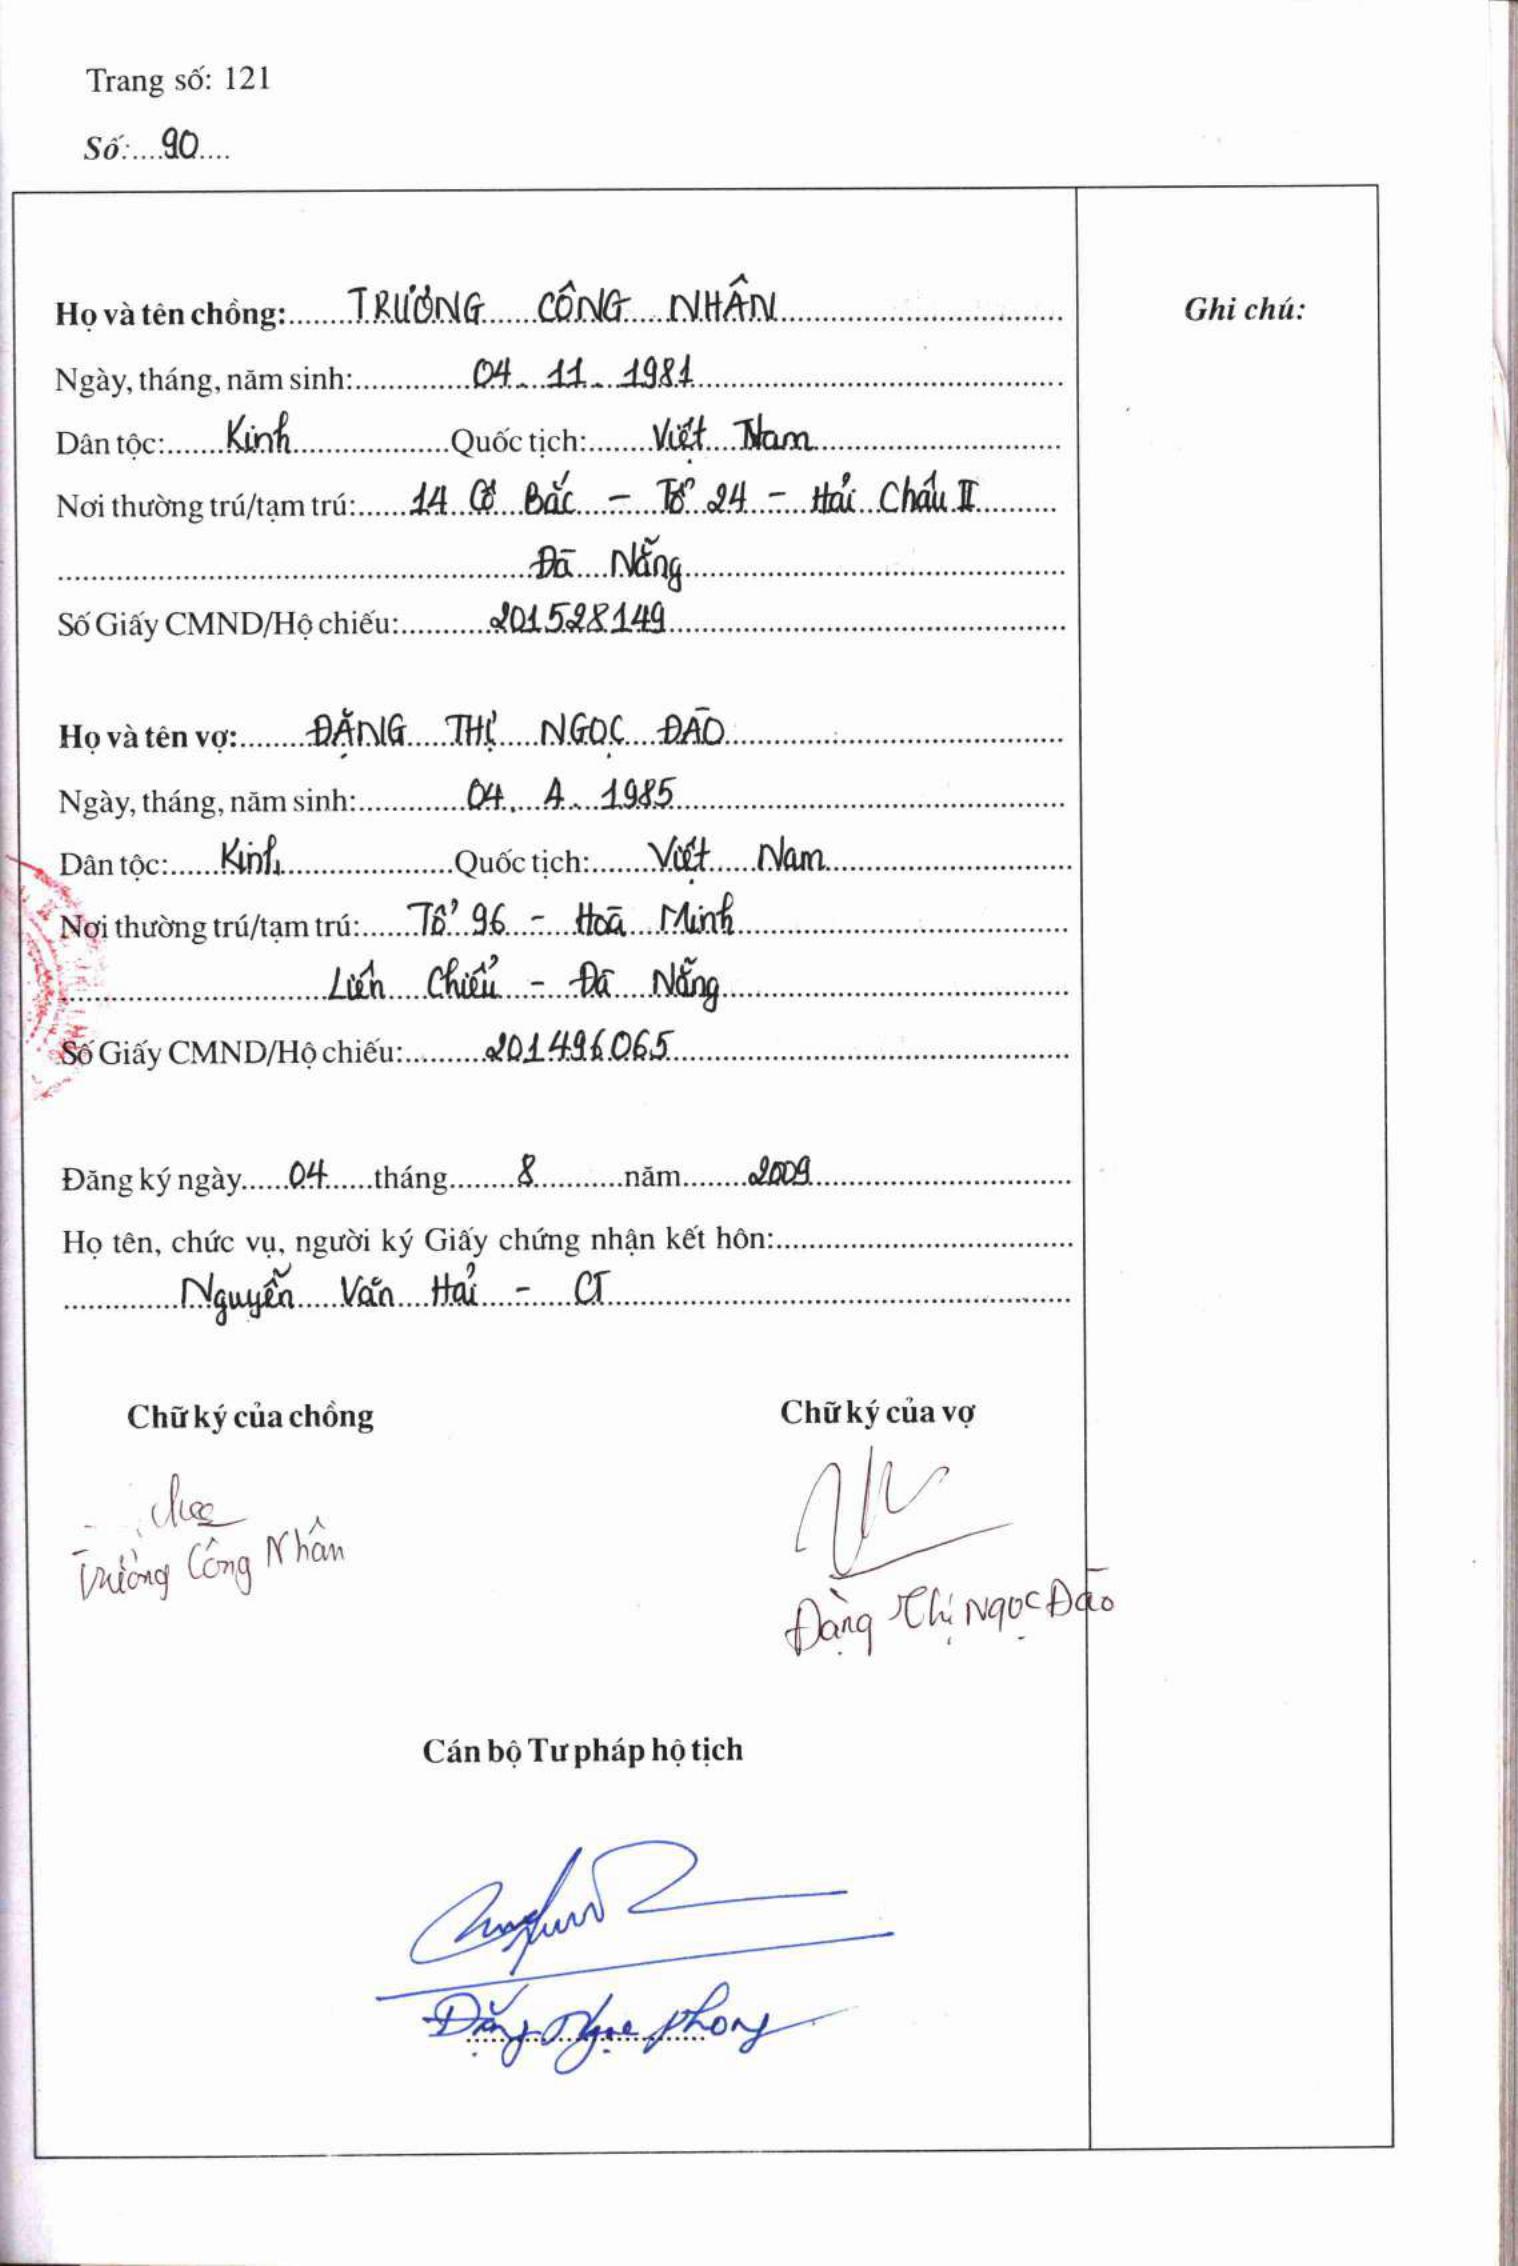 Trang số: 121
Số: 90
Họ và tên chồng: TRƯƠNG CÔNG NHÂN
Ghi chú:
Ngày, tháng, năm sinh: 04. 11. 1981
Dân tộc: Kinh Quốc tịch: Việt Nam
Nơi thường trú/tạm trú: 14 Cô Bắc - Tổ 24 - Hải Châu II
Đà Nẵng
Số Giấy CMND/Hộ chiếu: 201528149
Họ và tên vợ: ĐẶNG THỊ NGỌC ĐÀO
Ngày, tháng, năm sinh: 04. 1. 1985
Dân tộc: Kinh Quốc tịch: Việt Nam
Nơi thường trú/tạm trú: Tổ 96 - Hoà Minh
Liên Chiểu - Đà Nẵng
Số Giấy CMND/Hộ chiếu: 201496065
Đăng ký ngày 04 tháng 8 năm 2009
Họ tên, chức vụ, người ký Giấy chứng nhận kết hôn:
Nguyễn Văn Hải - CT
Chữ ký của chồng Chữ ký của vợ
Trương Công Nhân
Đặng Thị Ngọc Đào
Cán bộ Tư pháp hộ tịch
Đặng Ngọc Phong